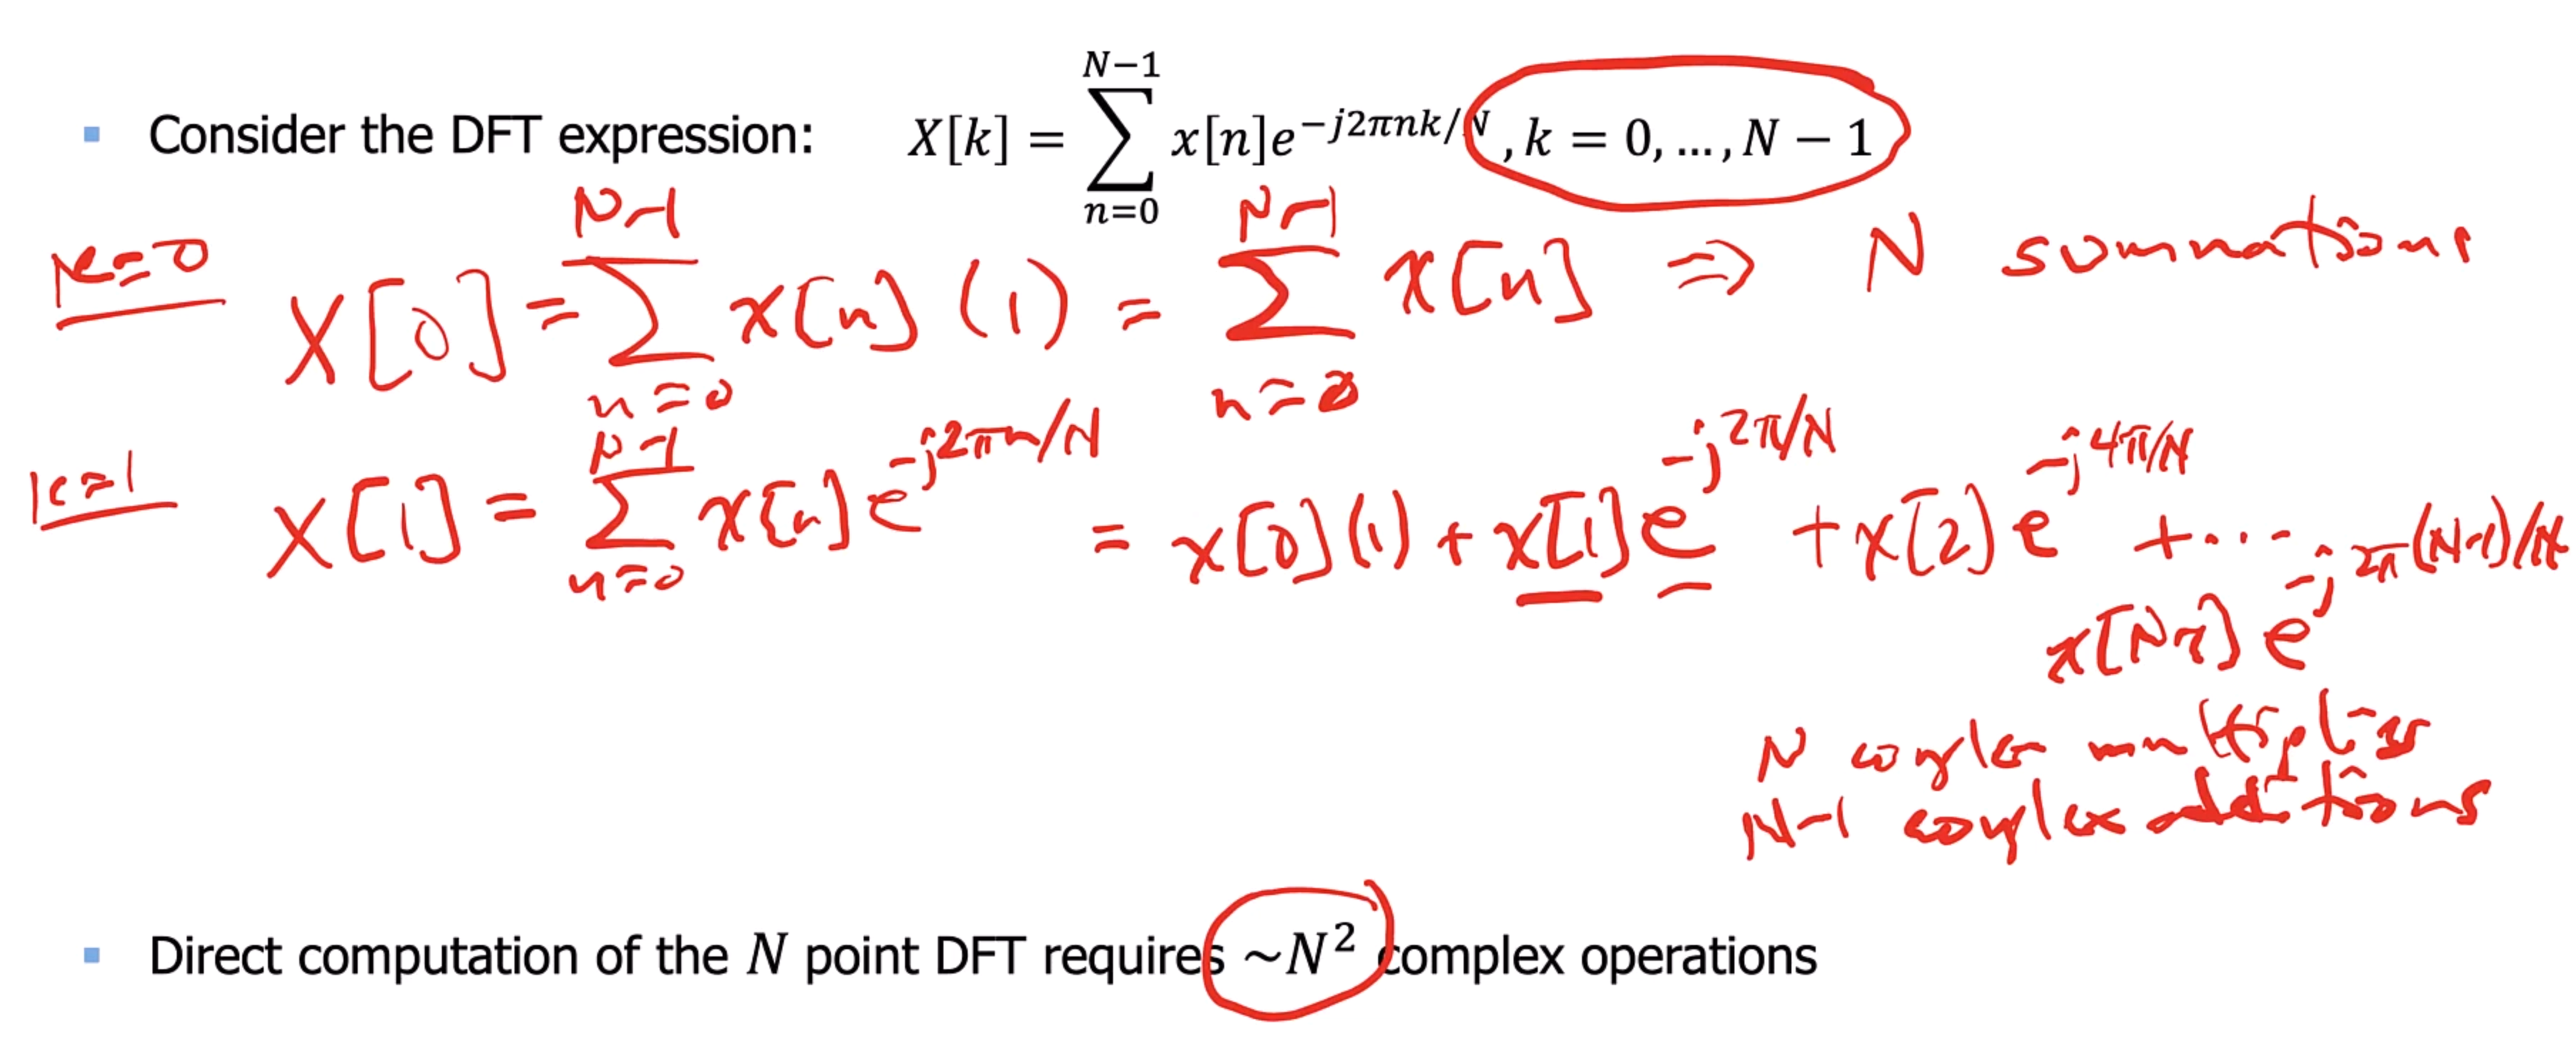 ▪ Consider the DFT expression: X[k] = \sum_{n=0}^{N-1} x[n]e^{-j2πnk/N}, k = 0, …, N − 1
k=0 X[0] = \sum_{n=0}^{N-1} x[n] (1) = \sum_{n=0}^{N-1} x[n] ⇒ N summations
k=1 X[1] = \sum_{n=0}^{N-1} x[n] e^{-j2πn/N} = x[0](1) + x[1]e^{-j2π/N} + x[2]e^{-j4π/N} + ...
x[N-1] e^{-j2π(N-1)/N}
N complex multiplies
N-1 complex additions
▪ Direct computation of the N point DFT requires ~N² complex operations